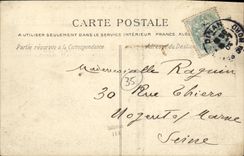 CARTE POSTALE
A UTILISER SEULEMENT DANS LE SERVICE INTÉRIEUR FRANCE, ALGÉRIE
Partie réservée à la Correspondance
Adresse du Destinataire
Mademoiselle Raguin
35
30 Rue Thiers
Nogent s/ Marne
Seine